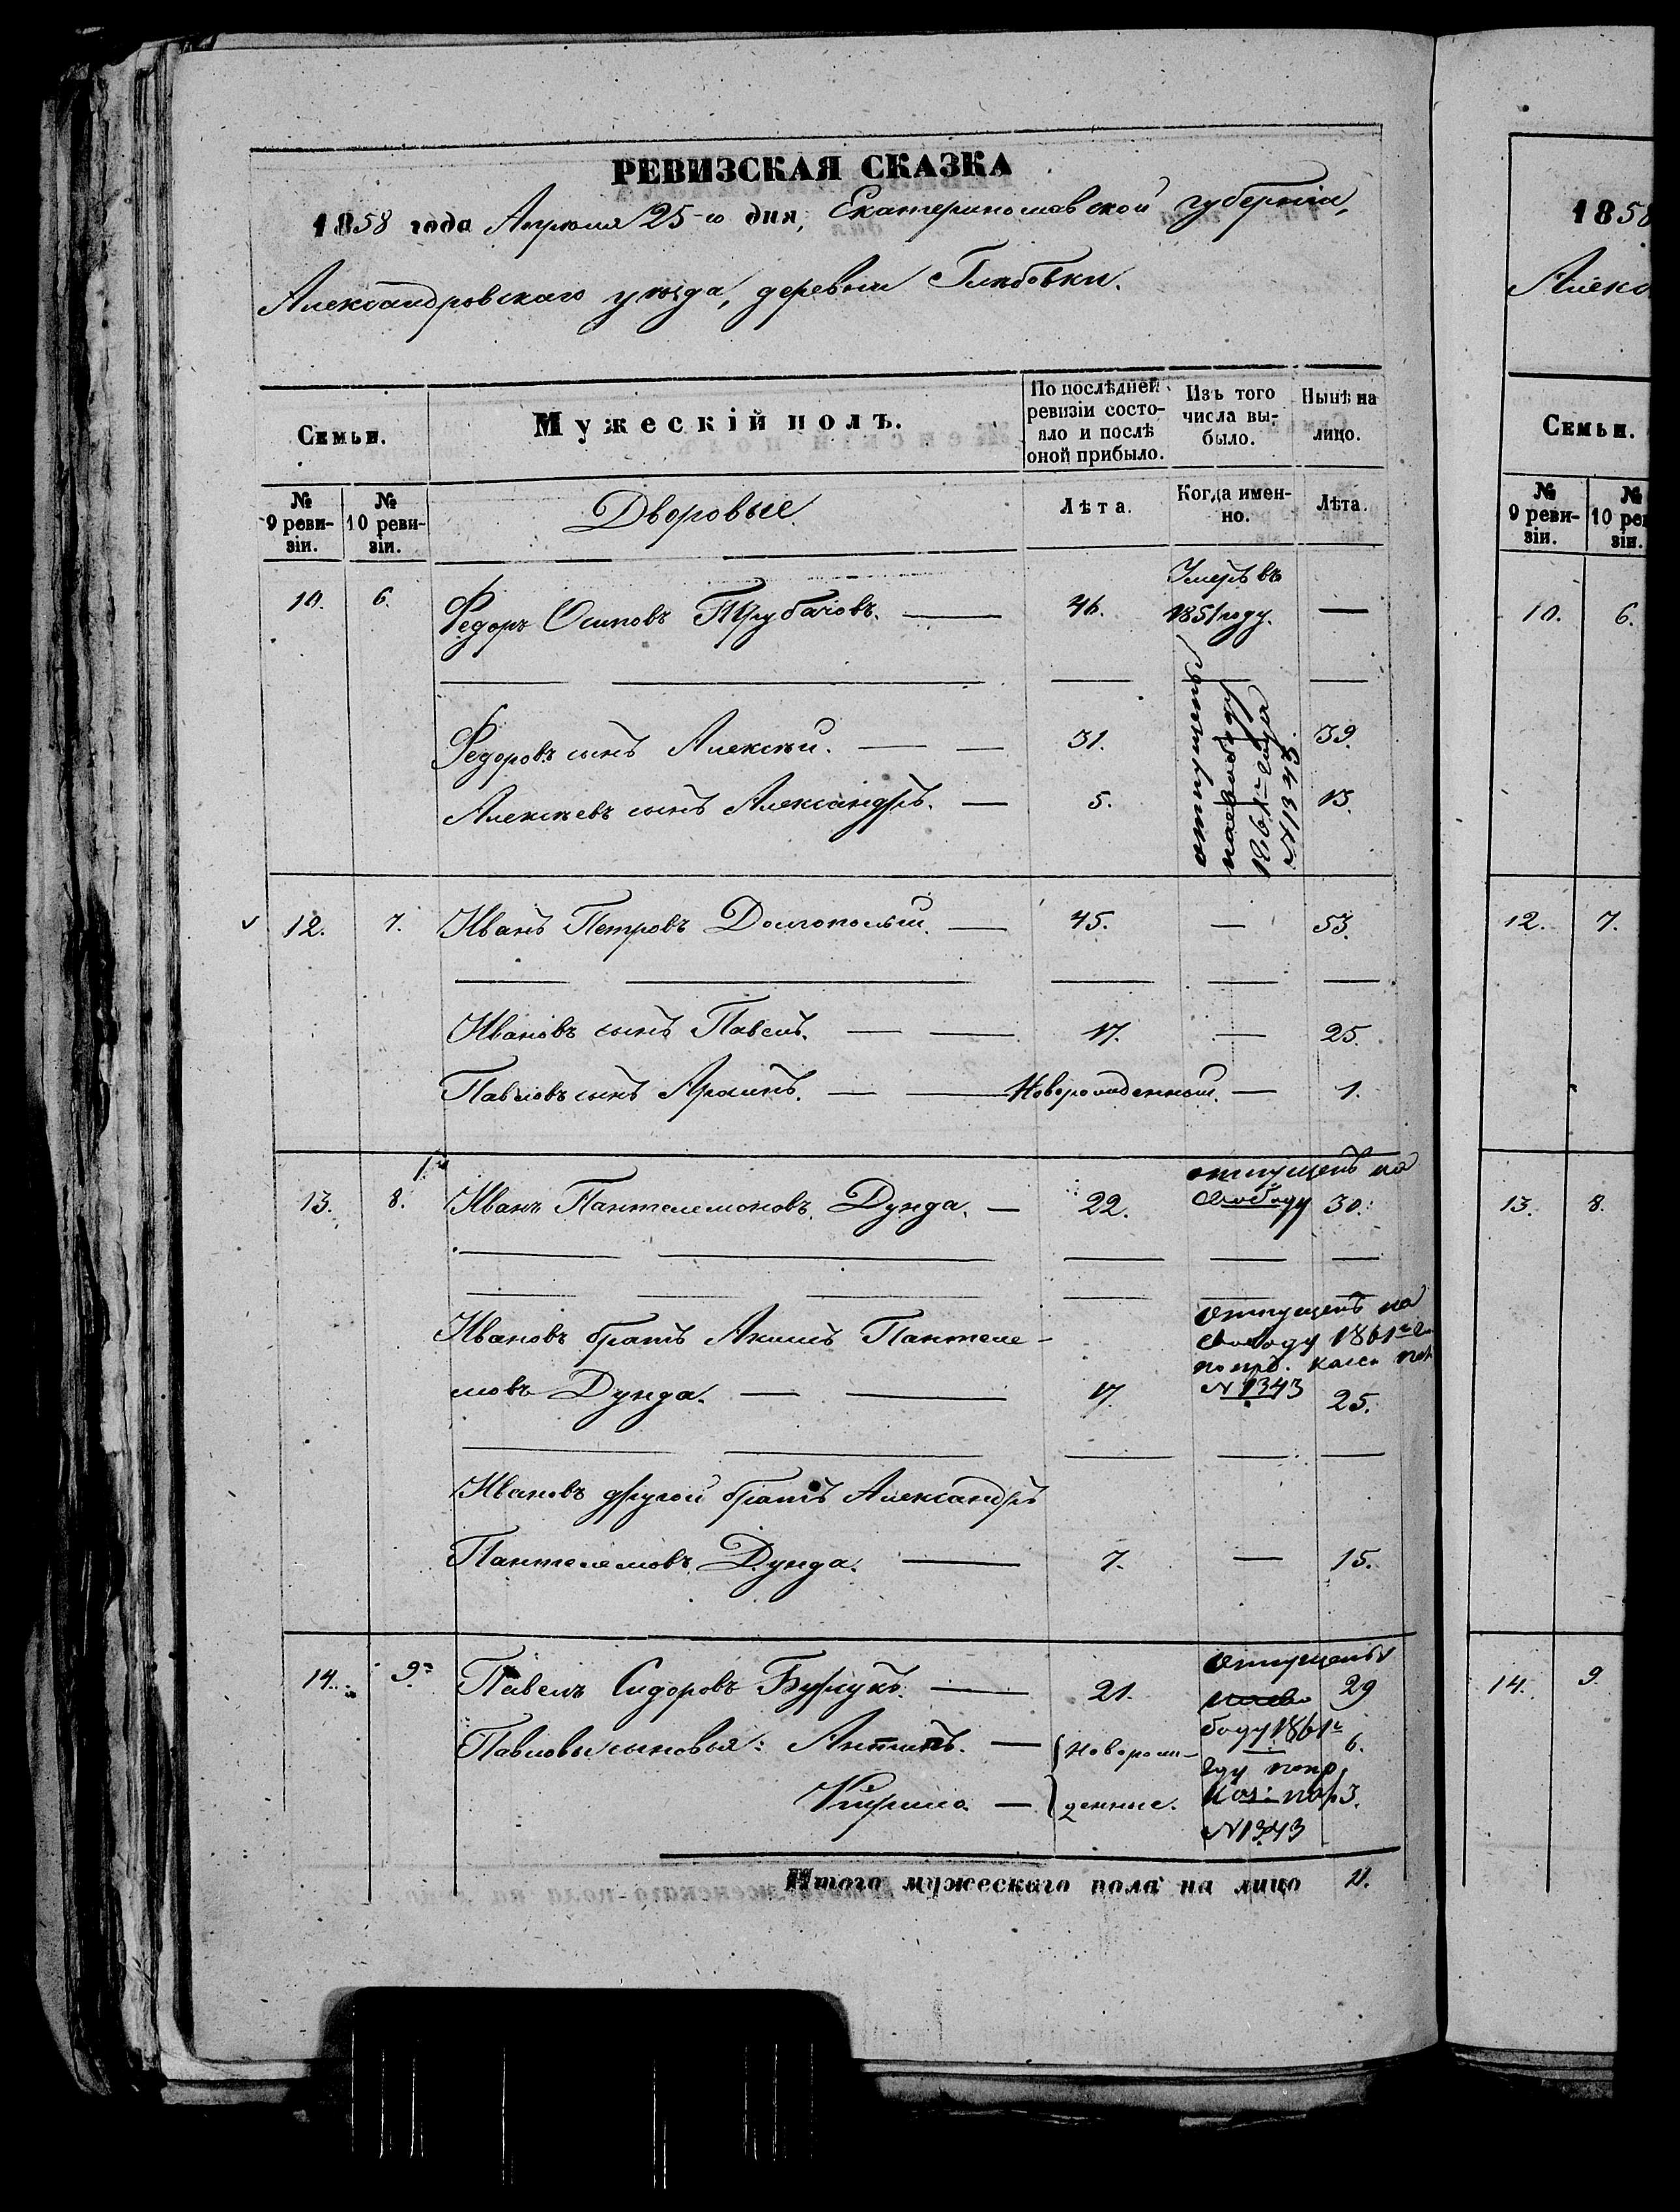 РЕВИЗСКАЯ СКАЗКА
1858 года Апреля 25-го дня, Екатеринославской губерніи,
Александровскаго уѣзда, деревни Глебовки.
Семьи.
Мужескій полъ.
По послѣдней ревизіи состояло и послѣ оной прибыло.
Изъ того числа выбыло.
Нынѣ на лицо.
№ 9 ревизіи.
№ 10 ревизіи.
Дворовые
Лѣта.
Когда именно.
Лѣта.
10. 6. Федоръ Осиповъ Трубачовъ. — 46. Умеръ въ 1851 году. —
Федоровъ сынъ Алексѣй. — — 31. 39.
Алексѣевъ сынъ Александръ. — 5. 13.
отпущены
на свободу
1861 г года
№ 1343.
12. 7. Иванъ Петровъ Долгополый. — 45. — 53.
Ивановъ сынъ Павелъ. — — 17. — 25.
Павловъ сынъ — — Новорожденный. — 1.
13. 8. Иванъ Пантелемоновъ Дунда. — 22. отпущенъ на свободу 30.
Ивановъ братъ Акимъ Пантеле-
мовъ Дунда. — — 17. отпущенъ на
свободу 1861 г
№ 1343 25.
Ивановъ другой братъ Александръ
Пантелемовъ Дунда. — 7. — 15.
14. 9. Павелъ Сидоровъ — 21. отпущены 29
Павловы сыновья: Антипъ. — Новорож- 6.
Кирило. — денные. 3.
на сво
боду 1861 г
году
№ 1343
Итого мужескаго пола на лицо 11.
1858
Алекс
Семьи.
№ 9 ревизіи.
№ 10 реви
зіи.
10. 6.
12. 7.
13. 8.
14. 9.